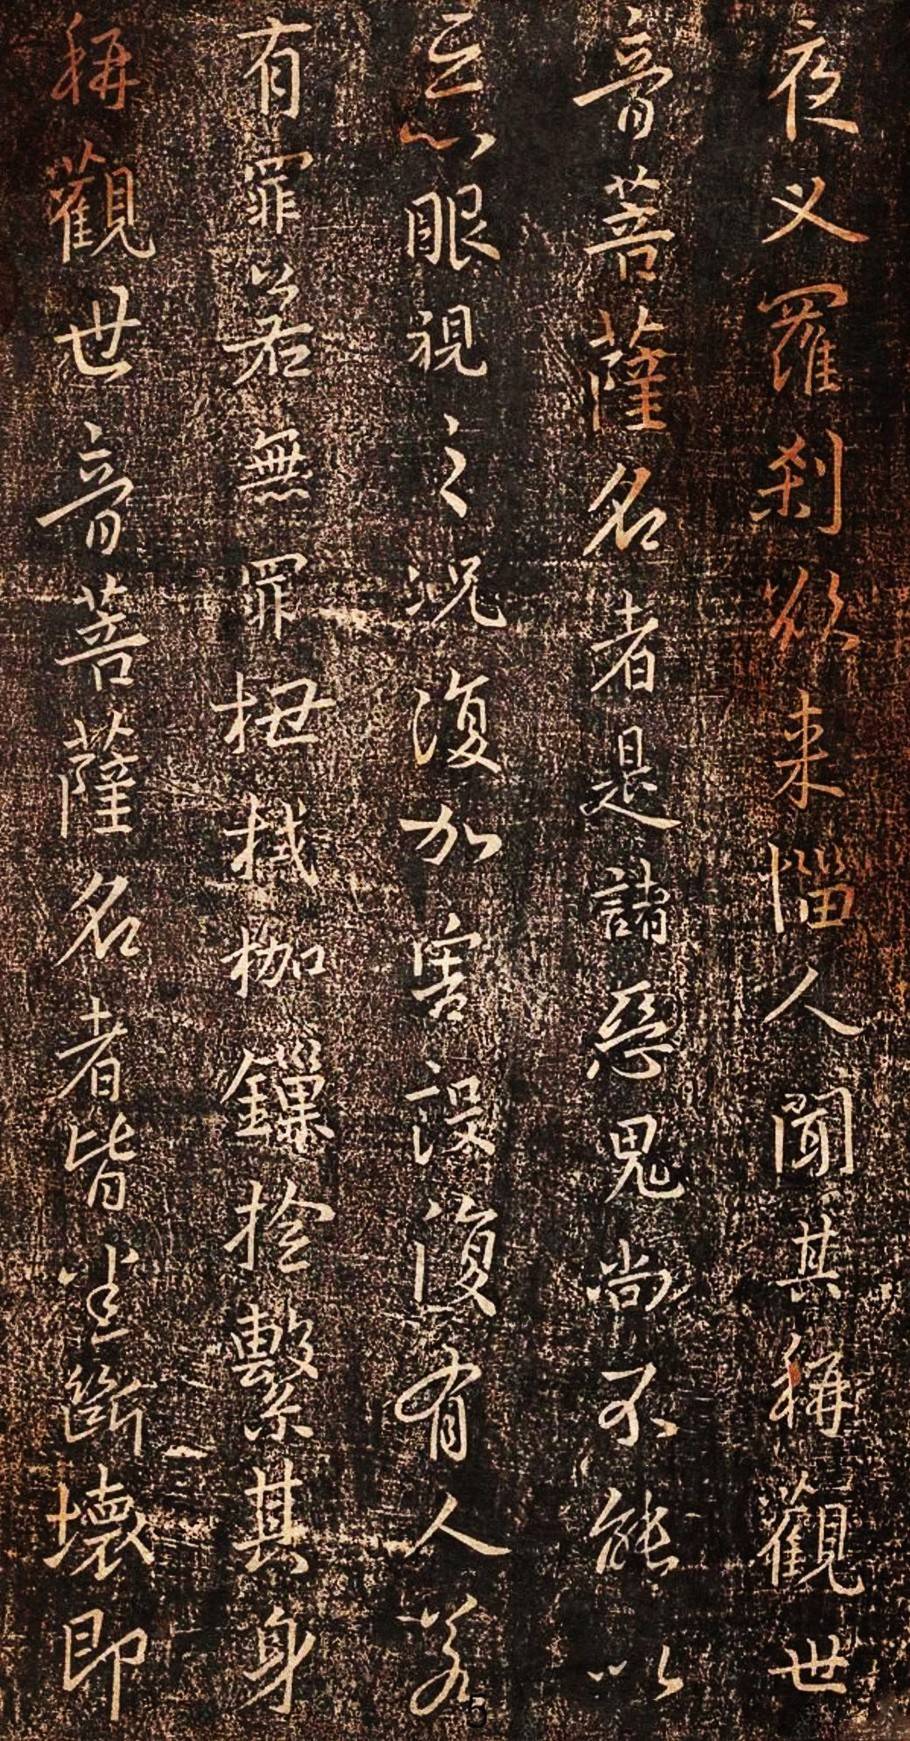 夜叉羅刹欲来惱人聞其稱觀世
音菩薩名者是諸惡鬼尚不能以
惡眼視之況復加害設復有人若
有罪若無罪杻械枷鎖撿繫其身
稱觀世音菩薩名者皆悉斷壞即
5